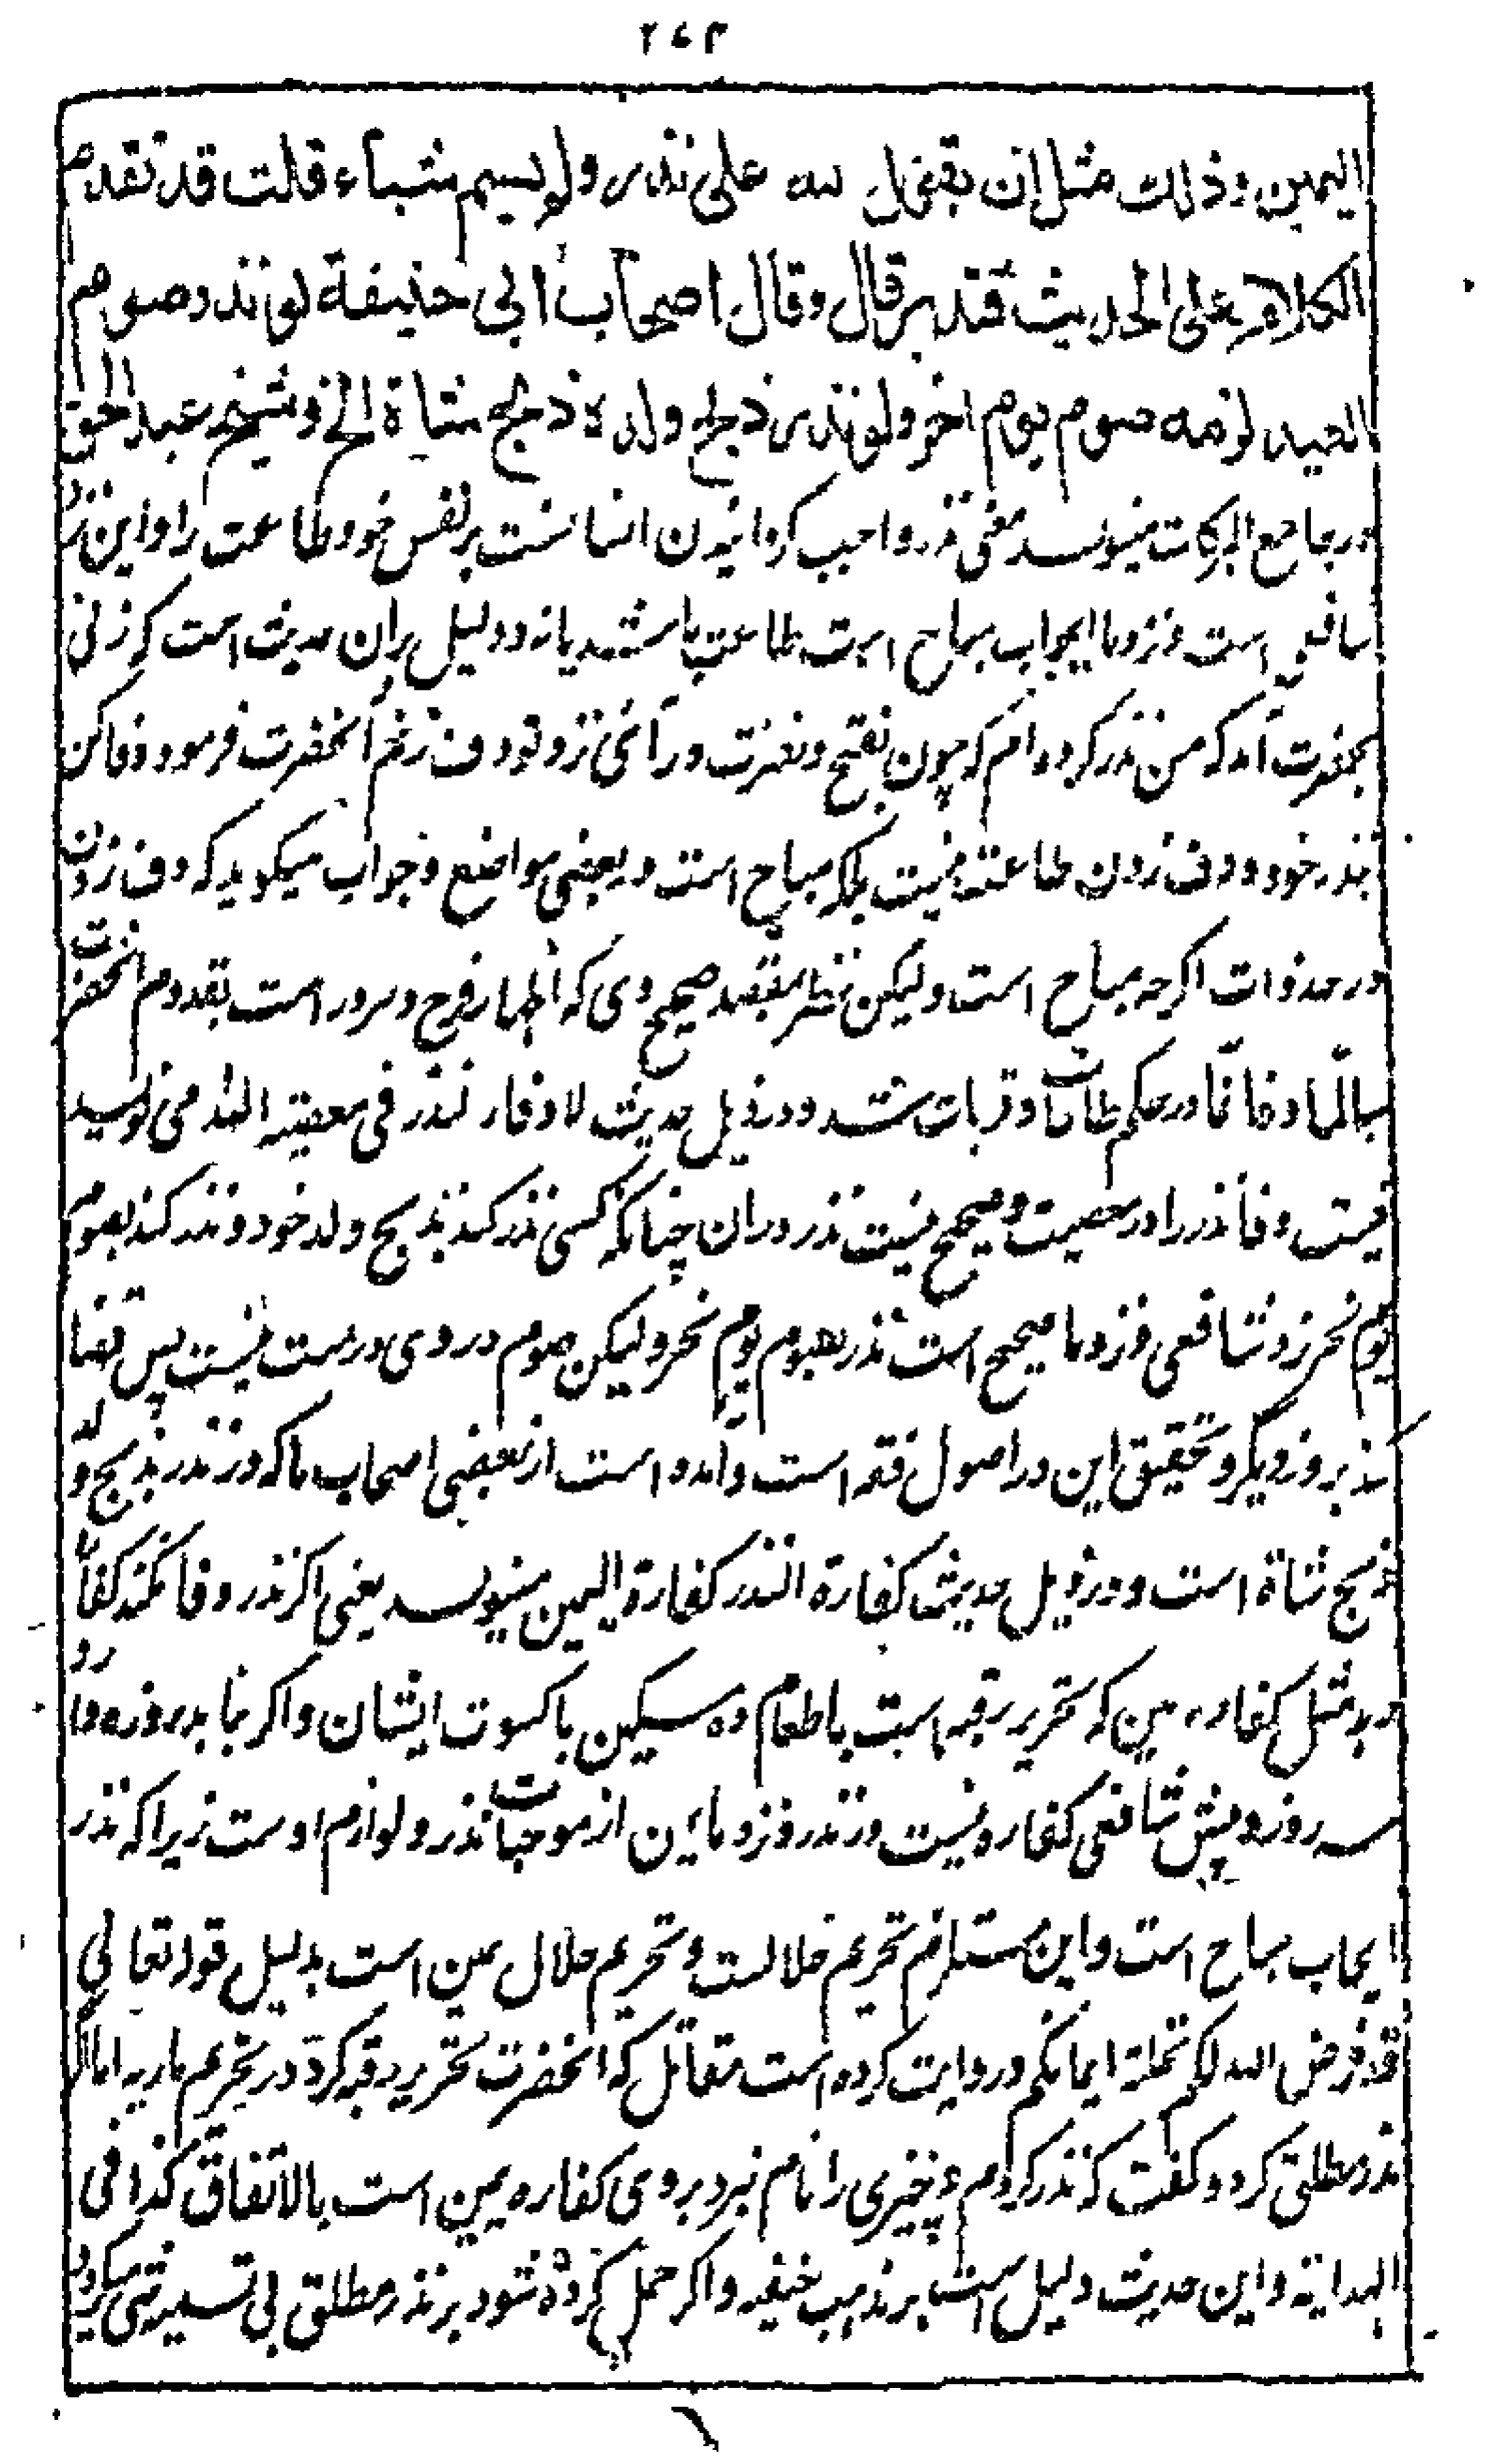 ۲۶۳
اليمين وذلك مثل ان يقول لله على نذر ولم يسم شيئاء قلت قد تقدم
الكلام على الحديث فتدبر قال وقال اصحاب ابى حنيفة لو نذر صوم
العيد لزمه صوم يوم اخر ولو نذر ذبح ولده ذبح شاة الخ وشيخ عبد الحق
در جامع البركات مينويسد معنى نذر واجب گردانيدن انسانست بر نفس خود طاعت را و اين نزد
شافعى است و نزد ما ايجاب مباح است طاعت باشد يا نه و دليل بران حديث است كه زنى
بحضرت آمد كه من نذر كرده ام كه چون بفتح و نصرت در آئى نزد تو دف زنم آنحضرت فرمود وفا كن
بنذر خود و دف زدن طاعت نيست بلكه مباح است و بعضى مواضع و جواب ميگويد كه دف زدن
در حد ذات اگرچه مباح است وليكن نظر بقصد صحيح وى كه اظهار فرح و سرور است بقدوم آنحضرت
سالما و غانما در حكم طاعات و قربات شد و در ذيل حديث لا وفاء لنذر فى معصية الله مى نويسد
نيست وفا نذر را در معصيت و صحيح نيست نذر دران چنانكه كسى نذر كند بذبح ولد خود و نذر كند بصوم
يوم نحر نزد شافعى و نزد ما صحيح است نذر بصوم يوم نحر وليكن صوم در وى درست نيست پس قضا
كند بروز ديگر و تحقيق اين در اصول فقه است و آمده است از بعضى اصحاب ما كه در نذر بذبح ولد
ذبح شاة است و در ذيل حديث كفارة النذر كفارة اليمين مينويسد يعنى اگر نذر وفا نكند كفاره
دهد مثل كفاره يمين كه تحرير رقبه است يا طعام ده مسكين يا كسوت ايشان و اگر نيابد روزه دارد
سه روز و پيش شافعى كفاره نيست در نذر و نزد ما اين از موجبات نذر و لوازم اوست زيرا كه نذر
ايجاب مباح است و اين مستلزم تحريم حلالست و تحريم حلال يمين است بدليل قوله تعالى
قد فرض الله لكم تحلة ايمانكم و روايت كرده است مقاتل كه آنحضرت تحرير رقبه كرد در تحريم ماريه اما اگر
نذر مطلق كرد و گفت كه نذر كردم و چيزى را نام نبرد بر وى كفاره يمين است بالاتفاق كذا فى
الهداية و اين حديث دليل است بر مذهب حنفيه و اگر حمل كرده شود بر نذر مطلق بى تسميه شى